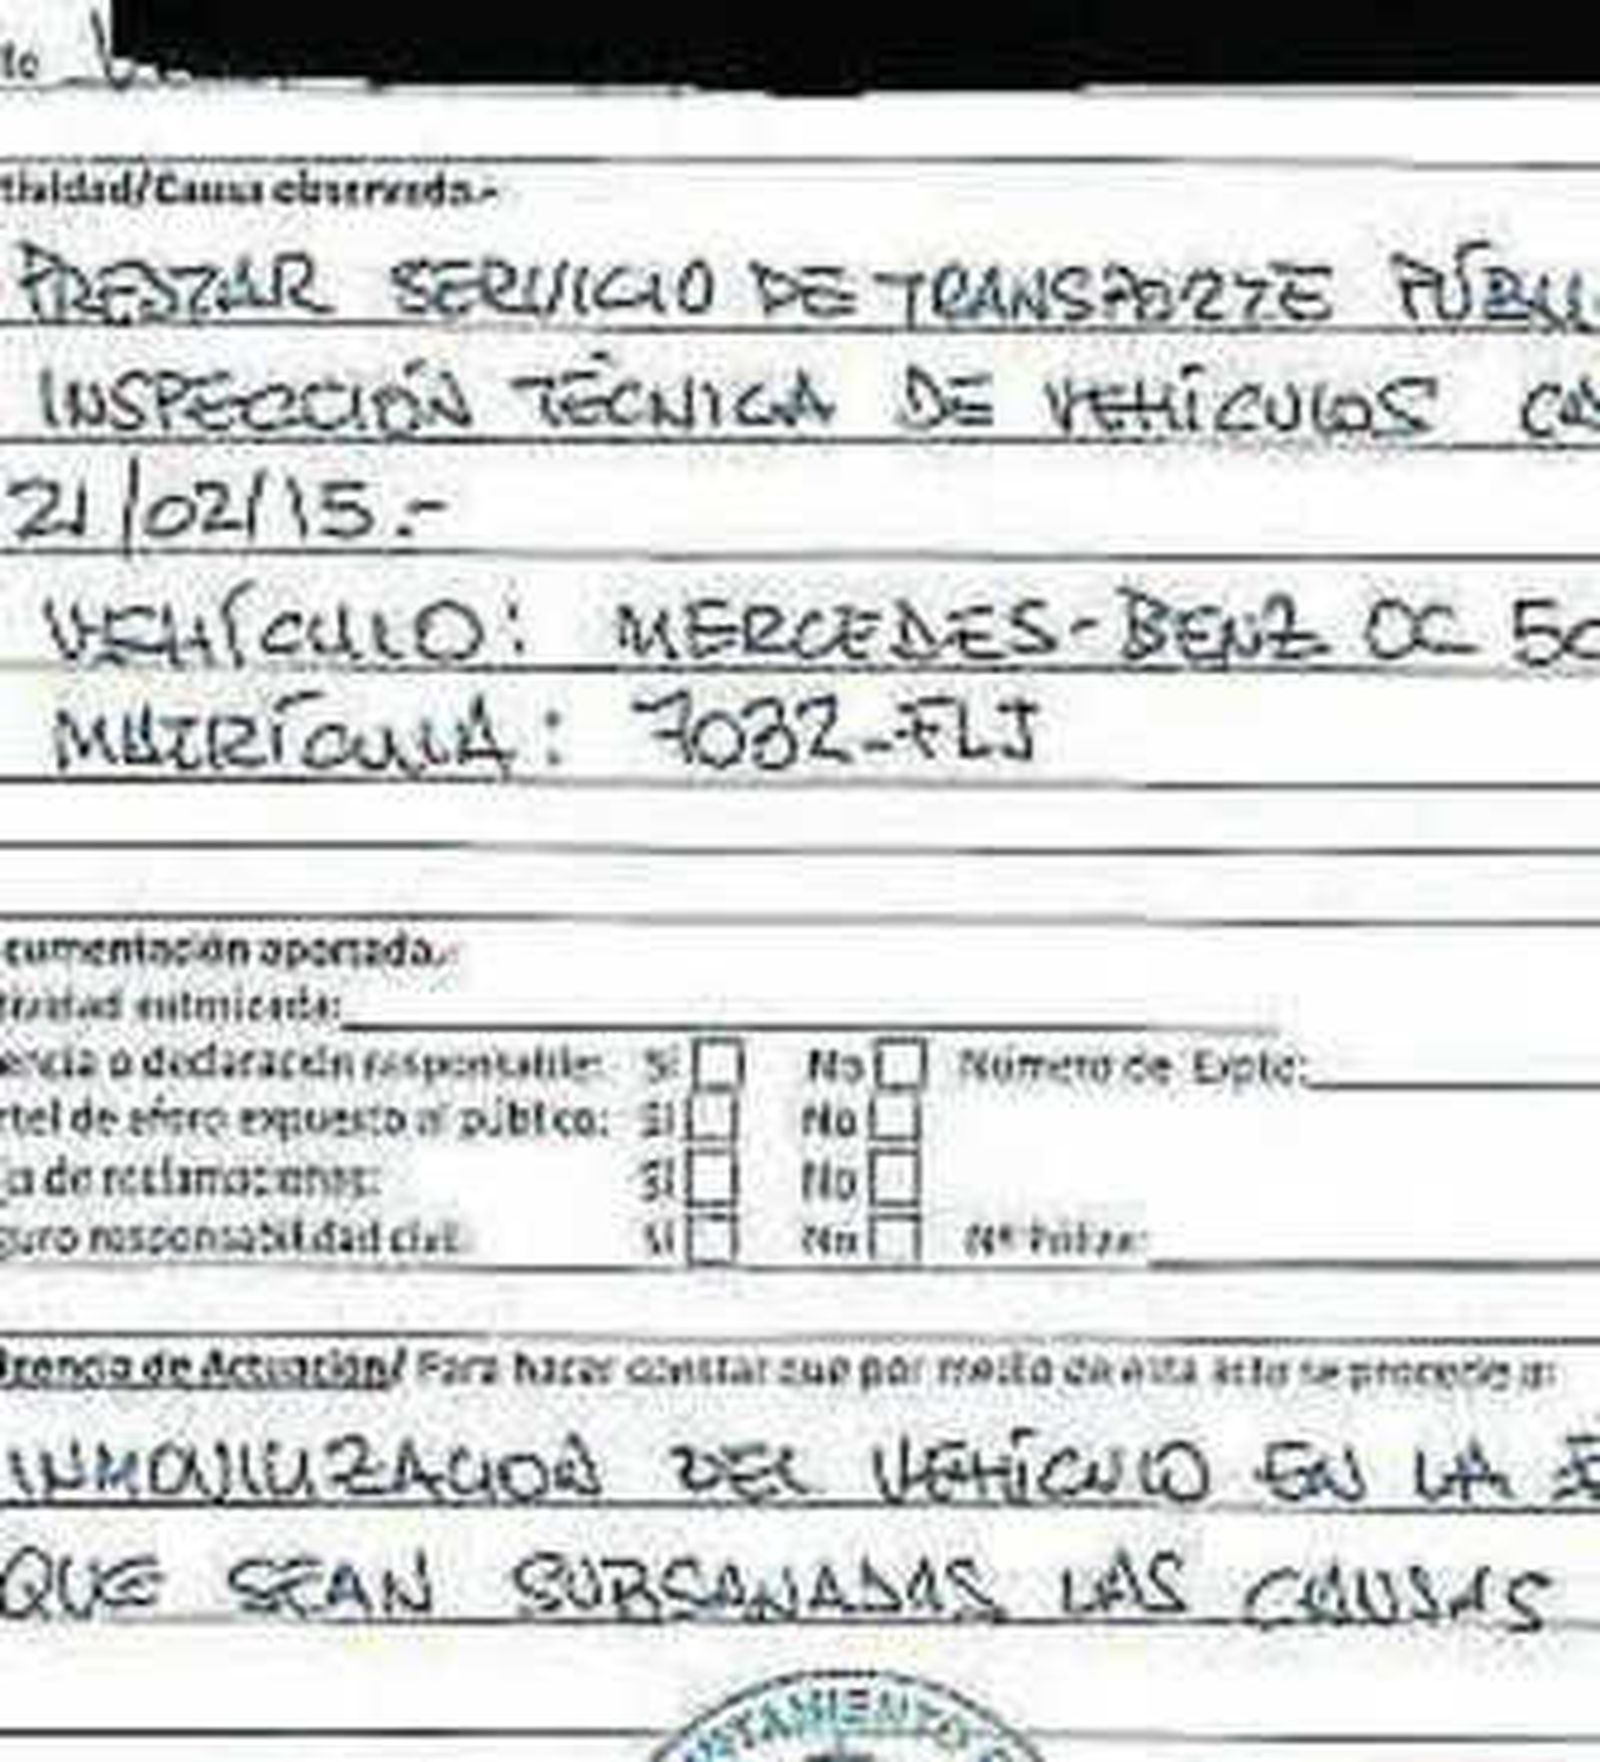 to
tividad/Causa observada.-
PRESTAR SERVICIO DE TRANSPORTE PÚBLI
INSPECCIÓN TÉCNICA DE VEHÍCULOS CA
21/02/15.-
VEHÍCULO: MERCEDES-BENZ OC 50
MATRÍCULA: 7032-FLJ
cumentación aportada.-
tividad autorizada:
encia o declaración responsable: Si No Número de Expte:
rtel de aforo expuesto al público: Si No
ja de reclamaciones: Si No
guro responsabilidad civil: Si No Nº Póliza:
igencia de Actuación/ Para hacer constar que por medio de esta acta se procede a:
INMOVILIZACION DEL VEHÍCULO EN LA
QUE SEAN SUBSANADAS LAS CAUSAS
UNTAMIENTO